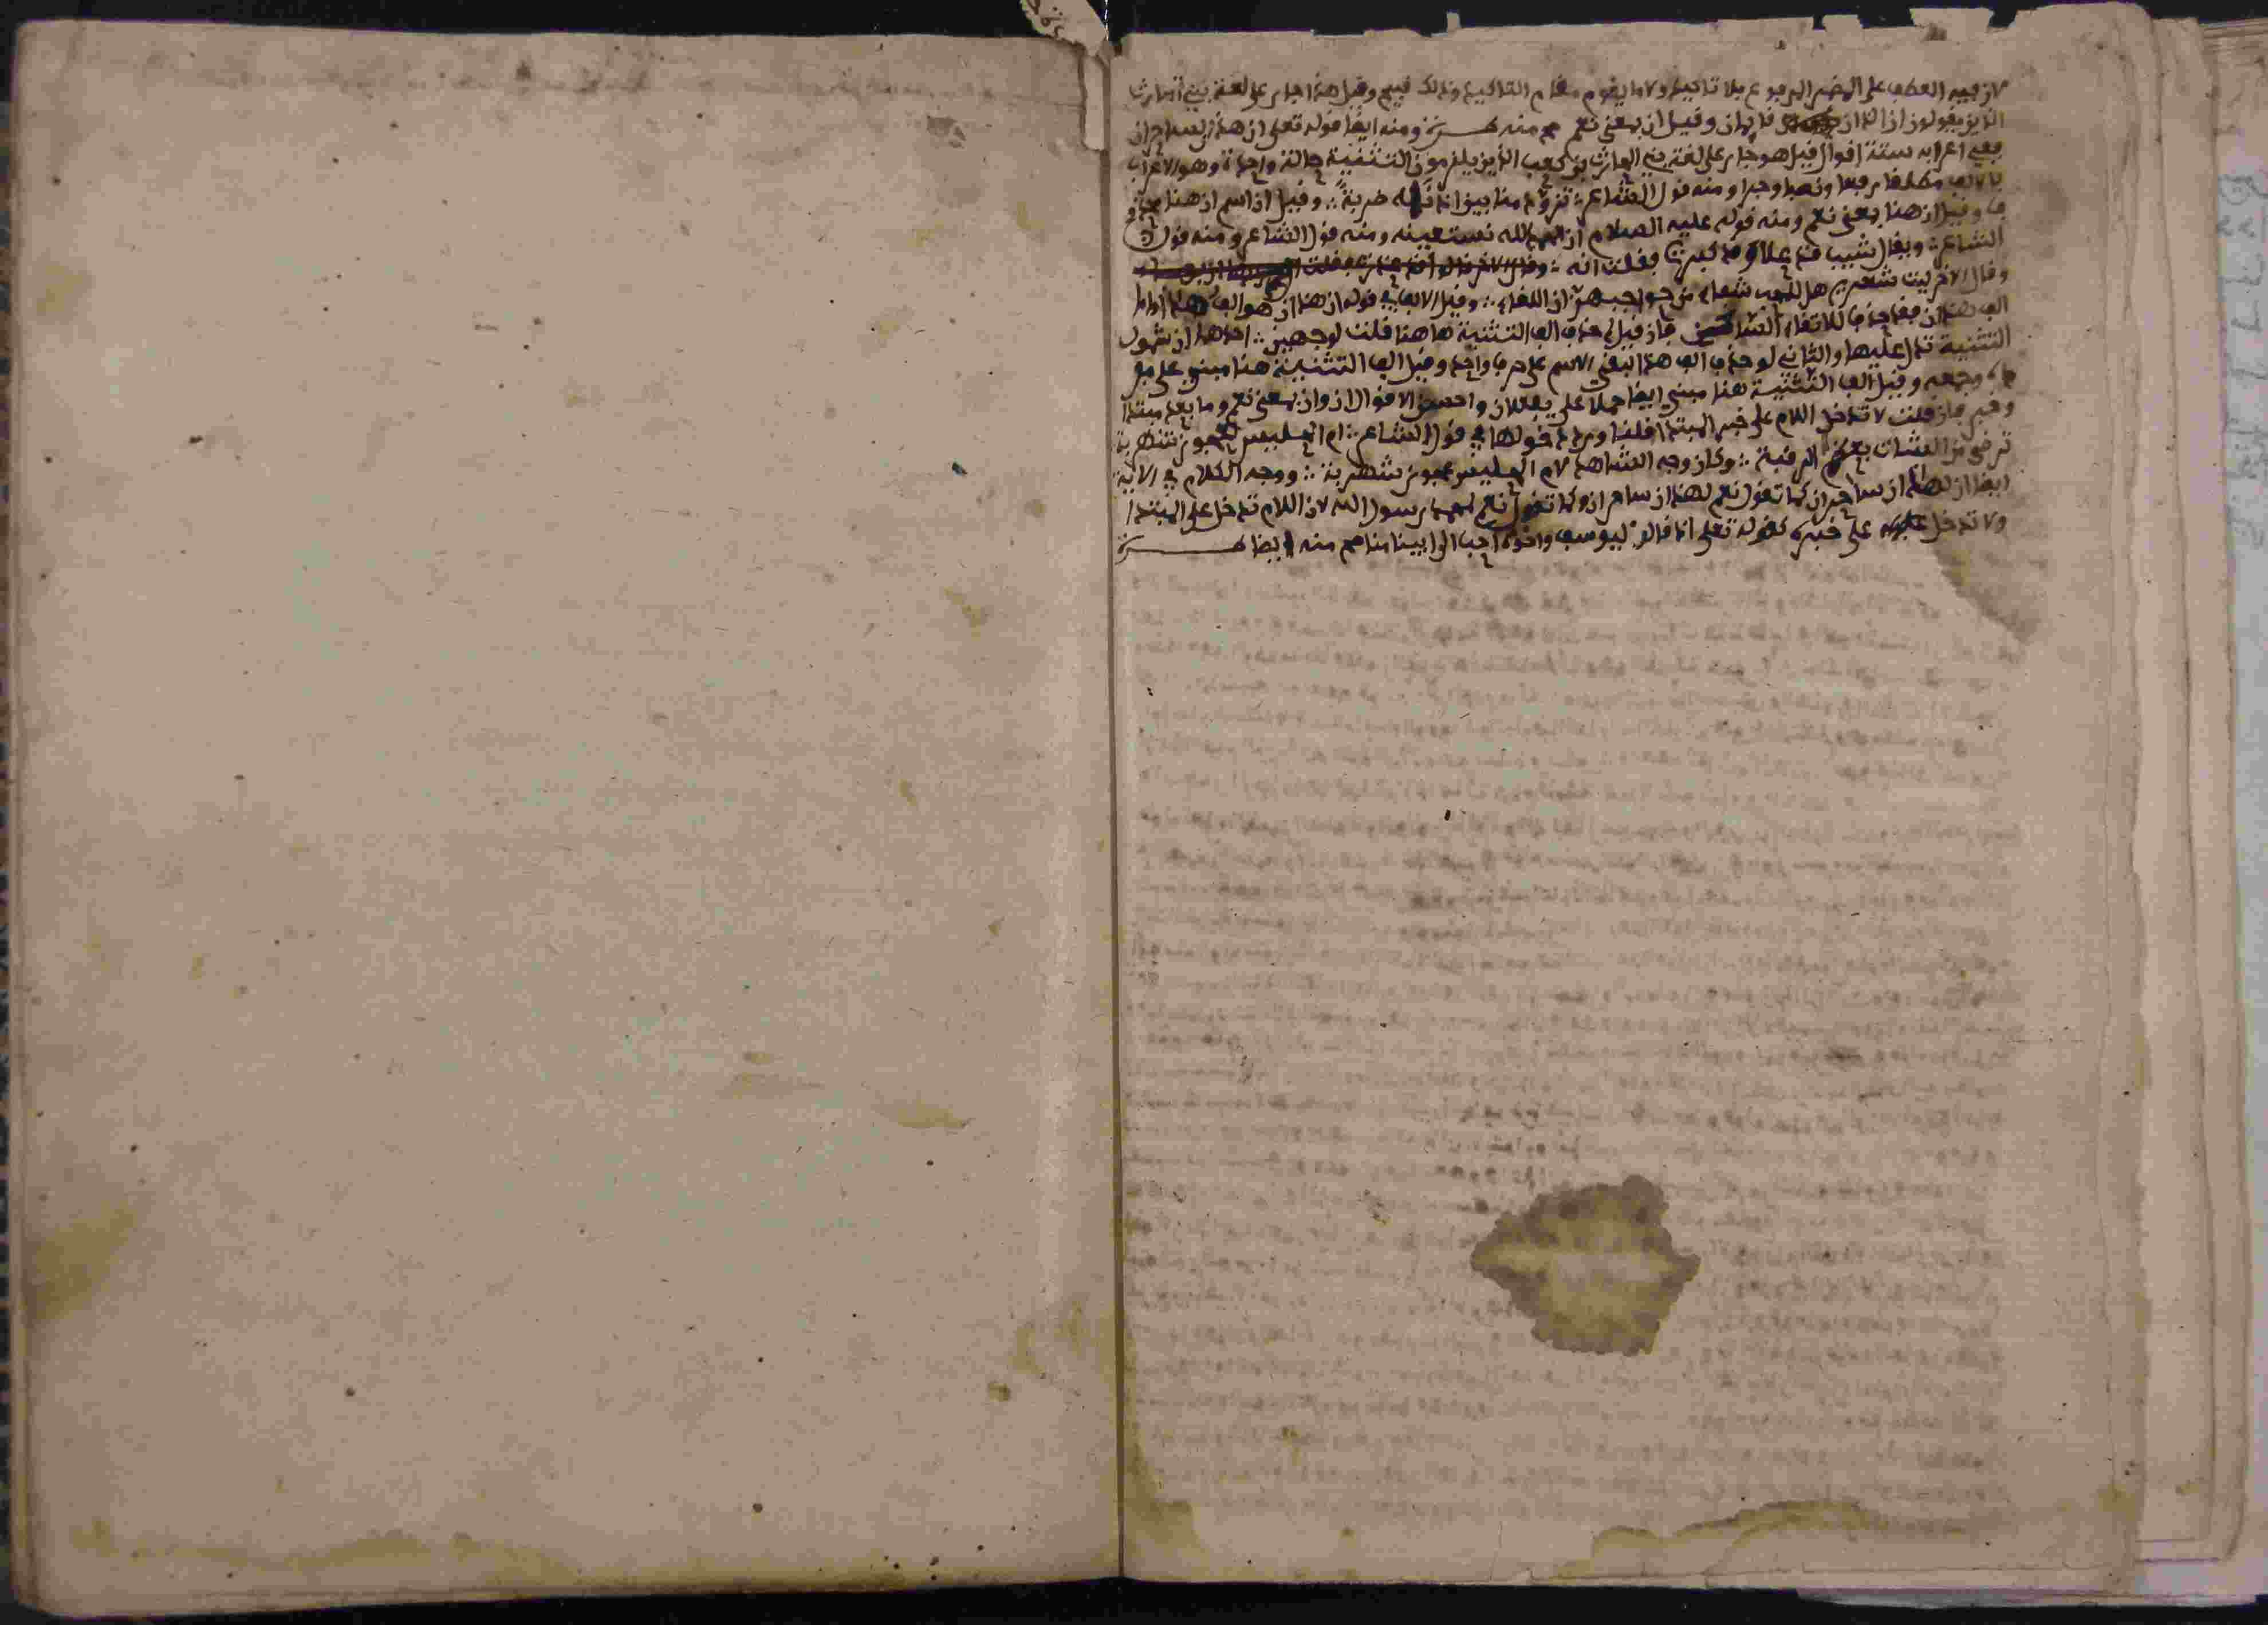 لان فيه العطف على المضمر المرفوع بلا تاكيد ولا ما يقوم مقام التاكيد وذلك قبيح وقيل هذا جار على لغة بني الحارث
الذين يقولون ان الذان قايمان وقيل ان بمعنى نعم صح منه ومنه ايضا قوله تعلى ان هذان لساحران
ففي اعرابه ستة اقوال قيل هو جار على لغة بني الحارث بن كعب الذين يلزمون التثنية حالة واحدة وهو الاعراب
بالالف مطلقا رفعا ونصبا وجرا ومنه قول الشاعر تزود منا بين اذناه ضربة وقيل ان اسم ان هنا محذو
ف وقيل ان هنا بمعنى نعم ومنه قوله عليه السلام ان الحمد لله نستعينه ومنه قول الشاعر ومنه قول
الشاعر ويقلن شيب قد علاك وقد كبرت فقلت انه
وقال الاخر ليت شعري هل للمحب شفاء من جوى حبهن ان اللقاء وقيل الالف في قوله ان هذان هو الف هذا واما
الف هذان فقد حذف للالتقاء الساكنين فان قيل لم حذف الف التثنية هاهنا قلت لوجهين احدهما ان نقول
التثنية تدل عليها والثاني لو حذف الف هذا لبقي الاسم على حرف واحد وقيل الف التثنية هنا مبني على مفر
ده وجمعه وقيل الف التثنية هنا مبني ايضا حملا على يفعلان واحسن الاقوال ان وان بمعنى نعم وما بعد مبتدا
وخبر فان قلت لا تدخل اللام على خبر المبتدا قلنا ورد دخولها في قول الشاعر ام الحليس لعجوز شهربة
ترضى من الشات بعظم الرقبة وكان وجه الشاهد لام الحليس عجوز شهربة ووجه الكلام في الاية
ايضا ان لهذان ساحران كما تقول نعم لهذان ساحران وكما تقول نعم لمحمد رسول الله لان اللام تدخل على المبتدا
ولا تدخل على خبره كقوله تعلى اذ قالوا ليوسف واخوه احب الى ابينا منا صح منه ايضا